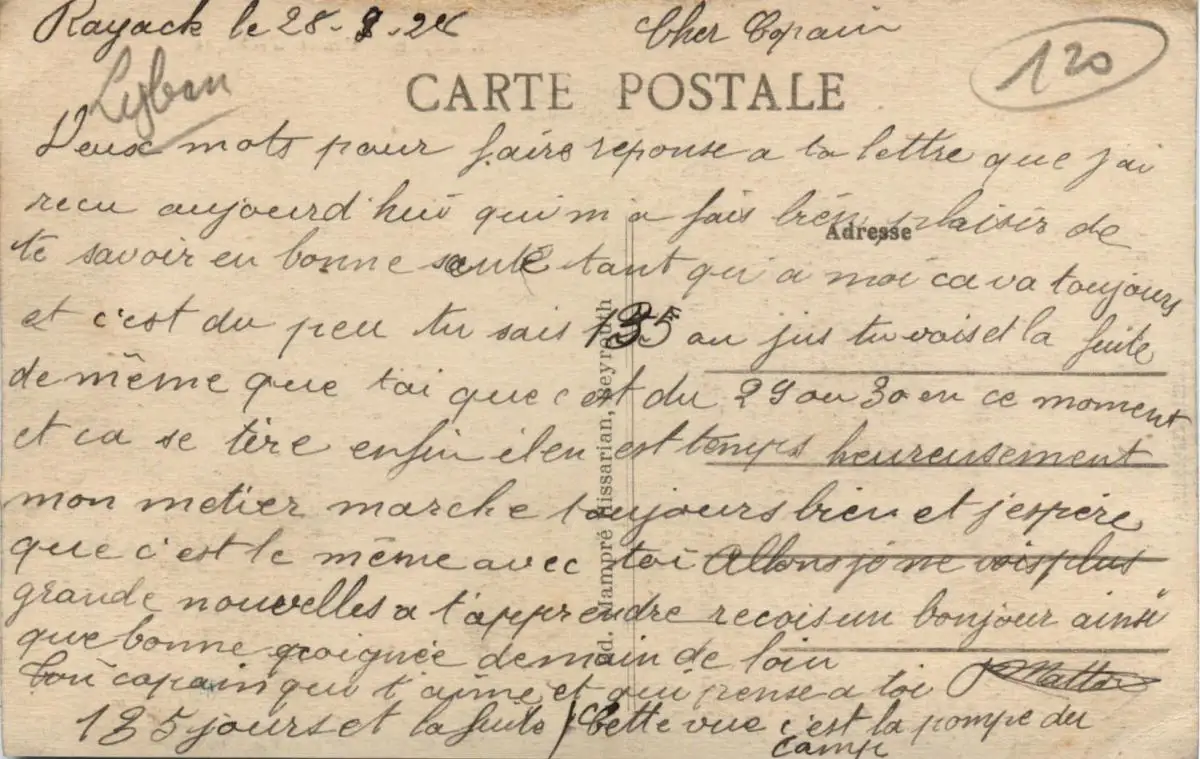 Rayack le 28-8-24 Cher Copain
120
Lyban
CARTE POSTALE
Deux mots pour faire réponse a ta lettre que j'ai
recu aujourd'hui qui m'a fais bien plaisir de
Adresse
te savoir en bonne santé tant qu'a moi ca va toujours
et c'est du peu tu sais 135 au jus tu vois et la suite
de même que toi que c'est du 29 ou 30 en ce moment
et ca se tire enfin il en est temps heureusement
mon metier marche toujours bien et j'espère
que c'est le même avec toi Allons je ne vois plus
grande nouvelles a t'apprendre recois un bonjour ainsi
que bonne poignée de main de loin
Ton copain qui t'aime et qui pense a toi
135 jours et la suite / Cette vue c'est la pompe du
camp
Hissarian, Beyrouth